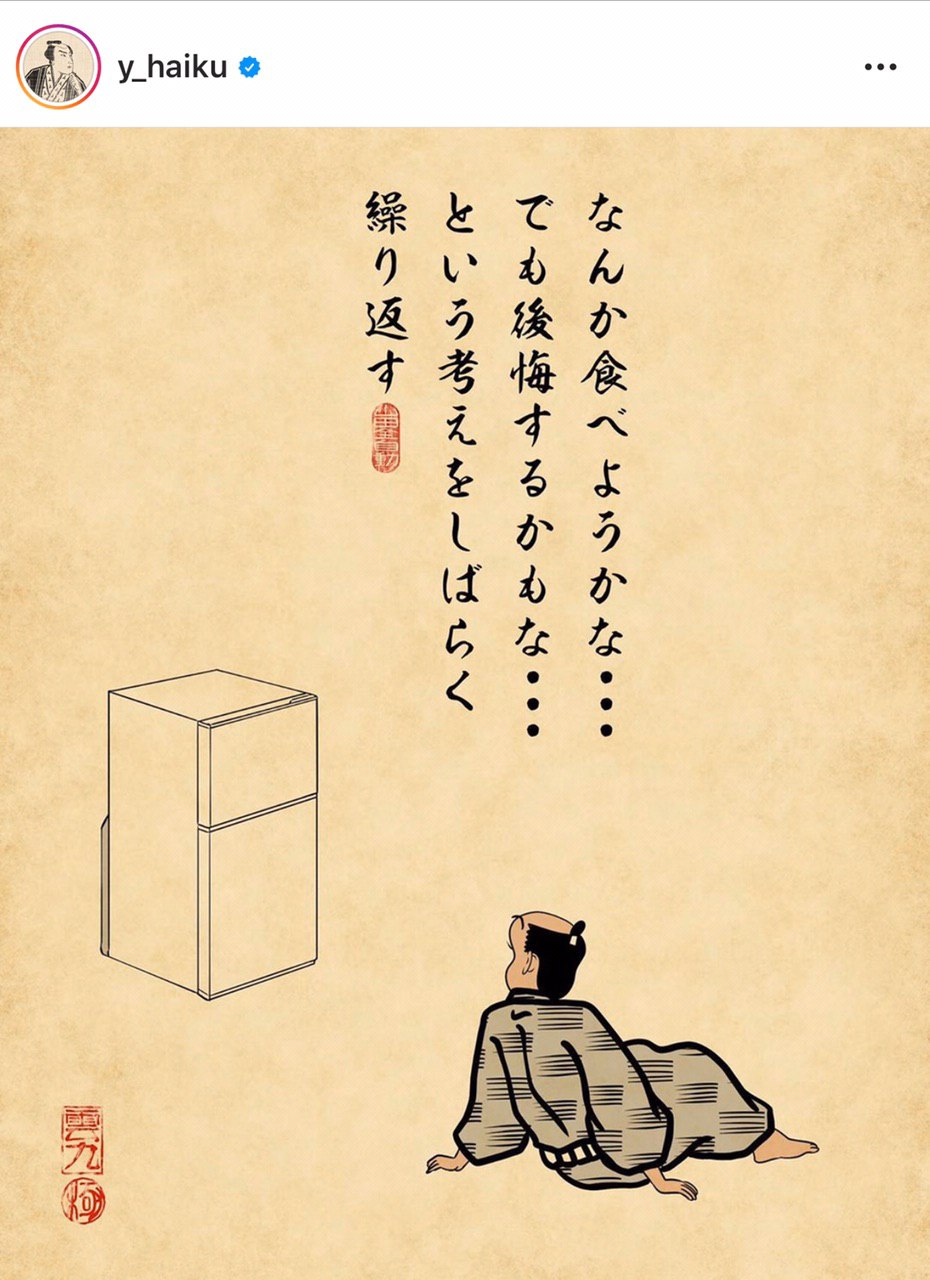 y_haiku
なんか食べようかな・・・
でも後悔するかもな・・・
という考えをしばらく
繰り返す